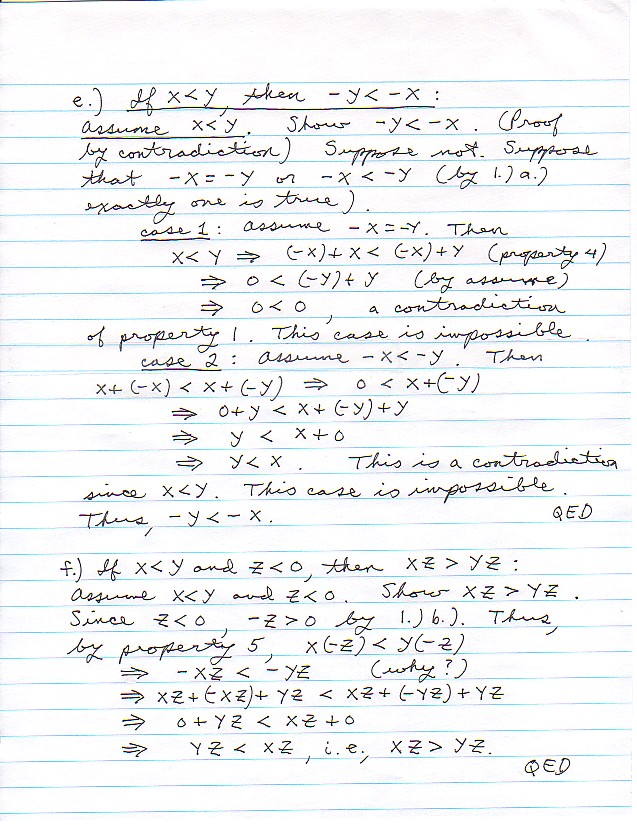 e.) If x<y, then -y<-x :
assume x<y. Show -y<-x. (Proof
by contradiction) Suppose not. Suppose
that -x=-y or -x<-y (by 1.) a.)
exactly one is true).
case 1 : assume -x=-y. Then
x<y ⇒ (-x)+x < (-x)+y (property 4)
⇒ 0 < (-y)+y (by assume)
⇒ 0<0, a contradiction
of property 1. This case is impossible.
case 2 : assume -x<-y. Then
x+(-x) < x+(-y) ⇒ 0 < x+(-y)
⇒ 0+y < x+(-y)+y
⇒ y < x+0
⇒ y<x. This is a contradiction
since x<y. This case is impossible.
Thus, -y<-x. QED
f.) If x<y and z<0, then xz > yz :
assume x<y and z<0. Show xz > yz.
Since z<0, -z>0 by 1.) b.). Thus,
by property 5, x(-z) < y(-z)
⇒ -xz < -yz (why?)
⇒ xz+(-xz)+yz < xz+(-yz)+yz
⇒ 0+yz < xz+0
⇒ yz < xz, i.e., xz > yz.
QED